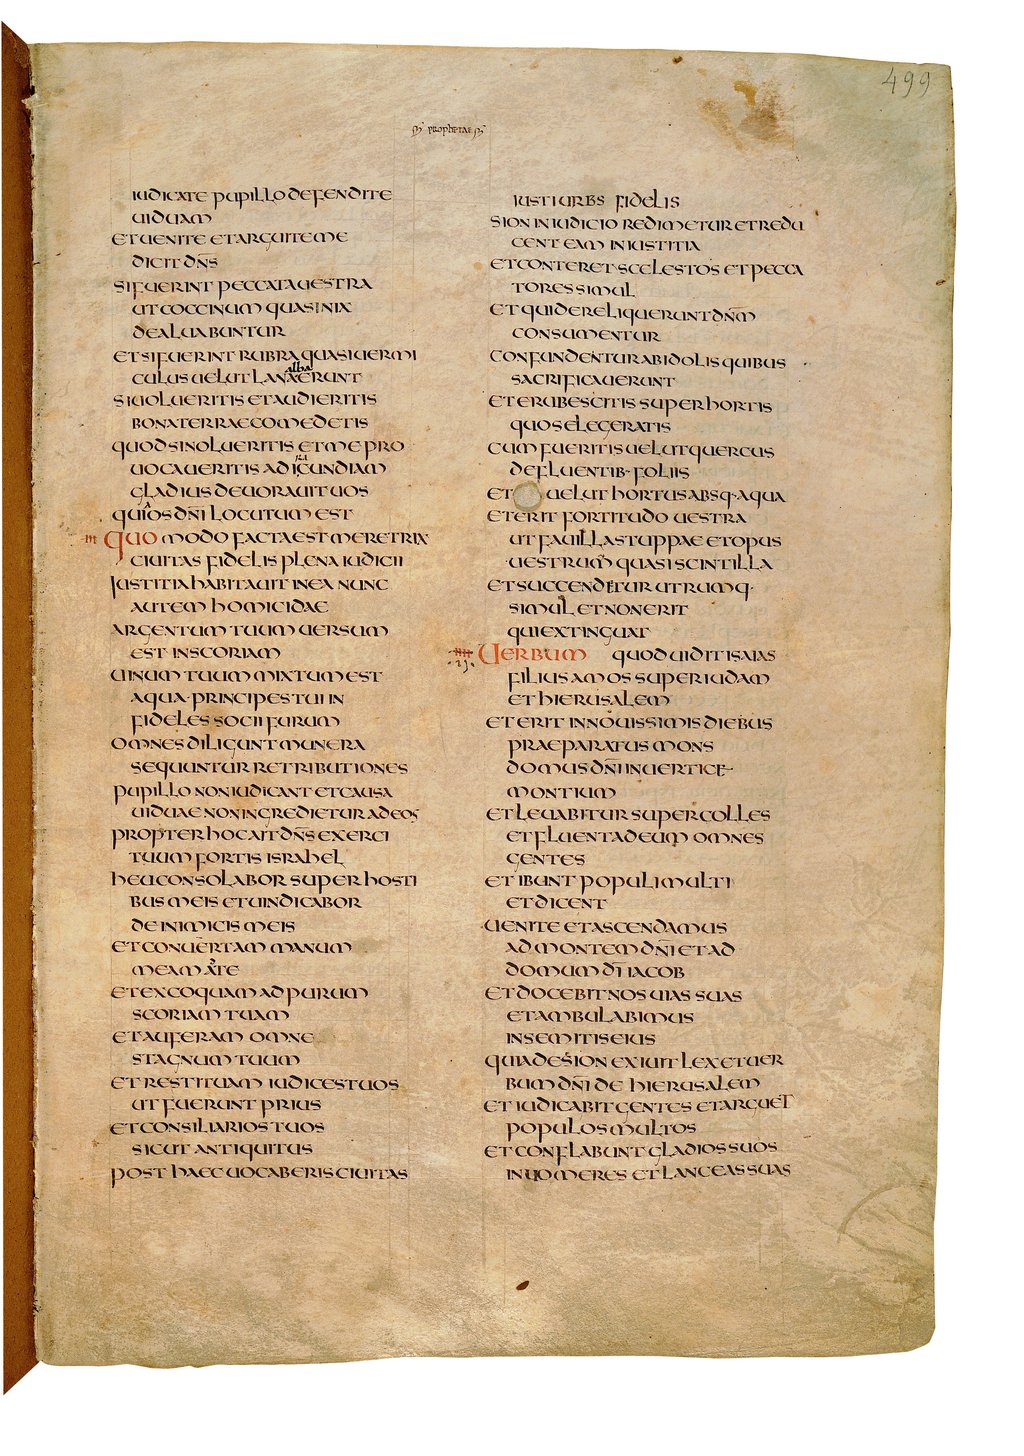 499
PROPHETAE
IUDICATE PUPILLO DEFENDITE
UIDUAM
ET UENITE ET ARGUITE ME
DICIT DN̄S
SI FUERINT PECCATA UESTRA
UT COCCINUM QUASI NIX
DEALUABUNTUR
ET SI FUERINT RUBRA QUASI UERMI
alba
CULUS UELUT LANA ERUNT
SI UOLUERITIS ET AUDIERITIS
BONA TERRAE COMEDETIS
QUOD SI NOLUERITIS ET ME PRO
UOCAUERITIS AD ICUNDIAM
GLADIUS DEUORAUIT UOS
QUI OS DN̄I LOCUTUM EST
III QUO MODO FACTA EST MERETRIX
CIUITAS FIDELIS PLENA IUDICII
IUSTITIA HABITAUIT IN EA NUNC
AUTEM HOMICIDAE
ARGENTUM TUUM UERSUM
EST IN SCORIAM
UINUM TUUM MIXTUM EST
AQUA· PRINCIPES TUI IN
FIDELES SOCII FURUM
OMNES DILIGUNT MUNERA
SEQUUNTUR RETRIBUTIONES
PUPILLO NON IUDICANT ET CAUSA
UIDUAE NON INGREDIETUR AD EOS
PROPTER HOC AIT DN̄S EXERCI
TUUM FORTIS ISRAHEL
HEU CONSOLABOR SUPER HOSTI
BUS MEIS ET UINDICABOR
DE INIMICIS MEIS
ET CONUERTAM MANUM
MEAM A TE
ET EXCOQUAM AD PURUM
SCORIAM TUAM
ET AUFERAM OMNE
STAGNUM TUUM
ET RESTITUAM IUDICES TUOS
UT FUERUNT PRIUS
ET CONSILIARIOS TUOS
SICUT ANTIQUITUS
POST HAEC UOCABERIS CIUITAS
IUSTI URBS FIDELIS
SION IN IUDICIO REDIMETUR ET REDU
CENT EAM IN IUSTITIA
ET CONTERET SCELESTOS ET PECCA
TORES SIMUL
ET QUI DERELIQUERUNT DN̄M
CONSUMENTUR
CONFUNDENTUR AB IDOLIS QUIBUS
SACRIFICAUERUNT
ET ERUBESCITIS SUPER HORTIS
QUOS ELEGERATIS
CUM FUERITIS UELUT QUERCUS
DEFLUENTIB· FOLIIS
ET UELUT HORTUS ABSQ· AQUA
ET ERIT FORTITUDO UESTRA
UT FAUILLA STUPPAE ET OPUS
UESTRUM QUASI SCINTILLA
ET SUCCENDETUR UTRUMQ·
SIMUL ET NON ERIT
QUI EXTINGUAT
IIII UERBUM QUOD UIDIT ISAIAS
FILIUS AMOS SUPER IUDAM
ET HIERUSALEM
ET ERIT IN NOUISSIMIS DIEBUS
PRAEPARATUS MONS
DOMUS DN̄I IN UERTICE
MONTIUM
ET LEUABITUR SUPER COLLES
ET FLUENT AD EUM OMNES
GENTES
ET IBUNT POPULI MULTI
ET DICENT
UENITE ET ASCENDAMUS
AD MONTEM DN̄I ET AD
DOMUM DĪ IACOB
ET DOCEBIT NOS UIAS SUAS
ET AMBULABIMUS
IN SEMITIS EIUS
QUIA DE SION EXIUIT LEX ET UER
BUM DN̄I DE HIERUSALEM
ET IUDICABIT GENTES ET ARGUET
POPULOS MULTOS
ET CONFLABUNT GLADIOS SUOS
IN UOMERES ET LANCEAS SUAS